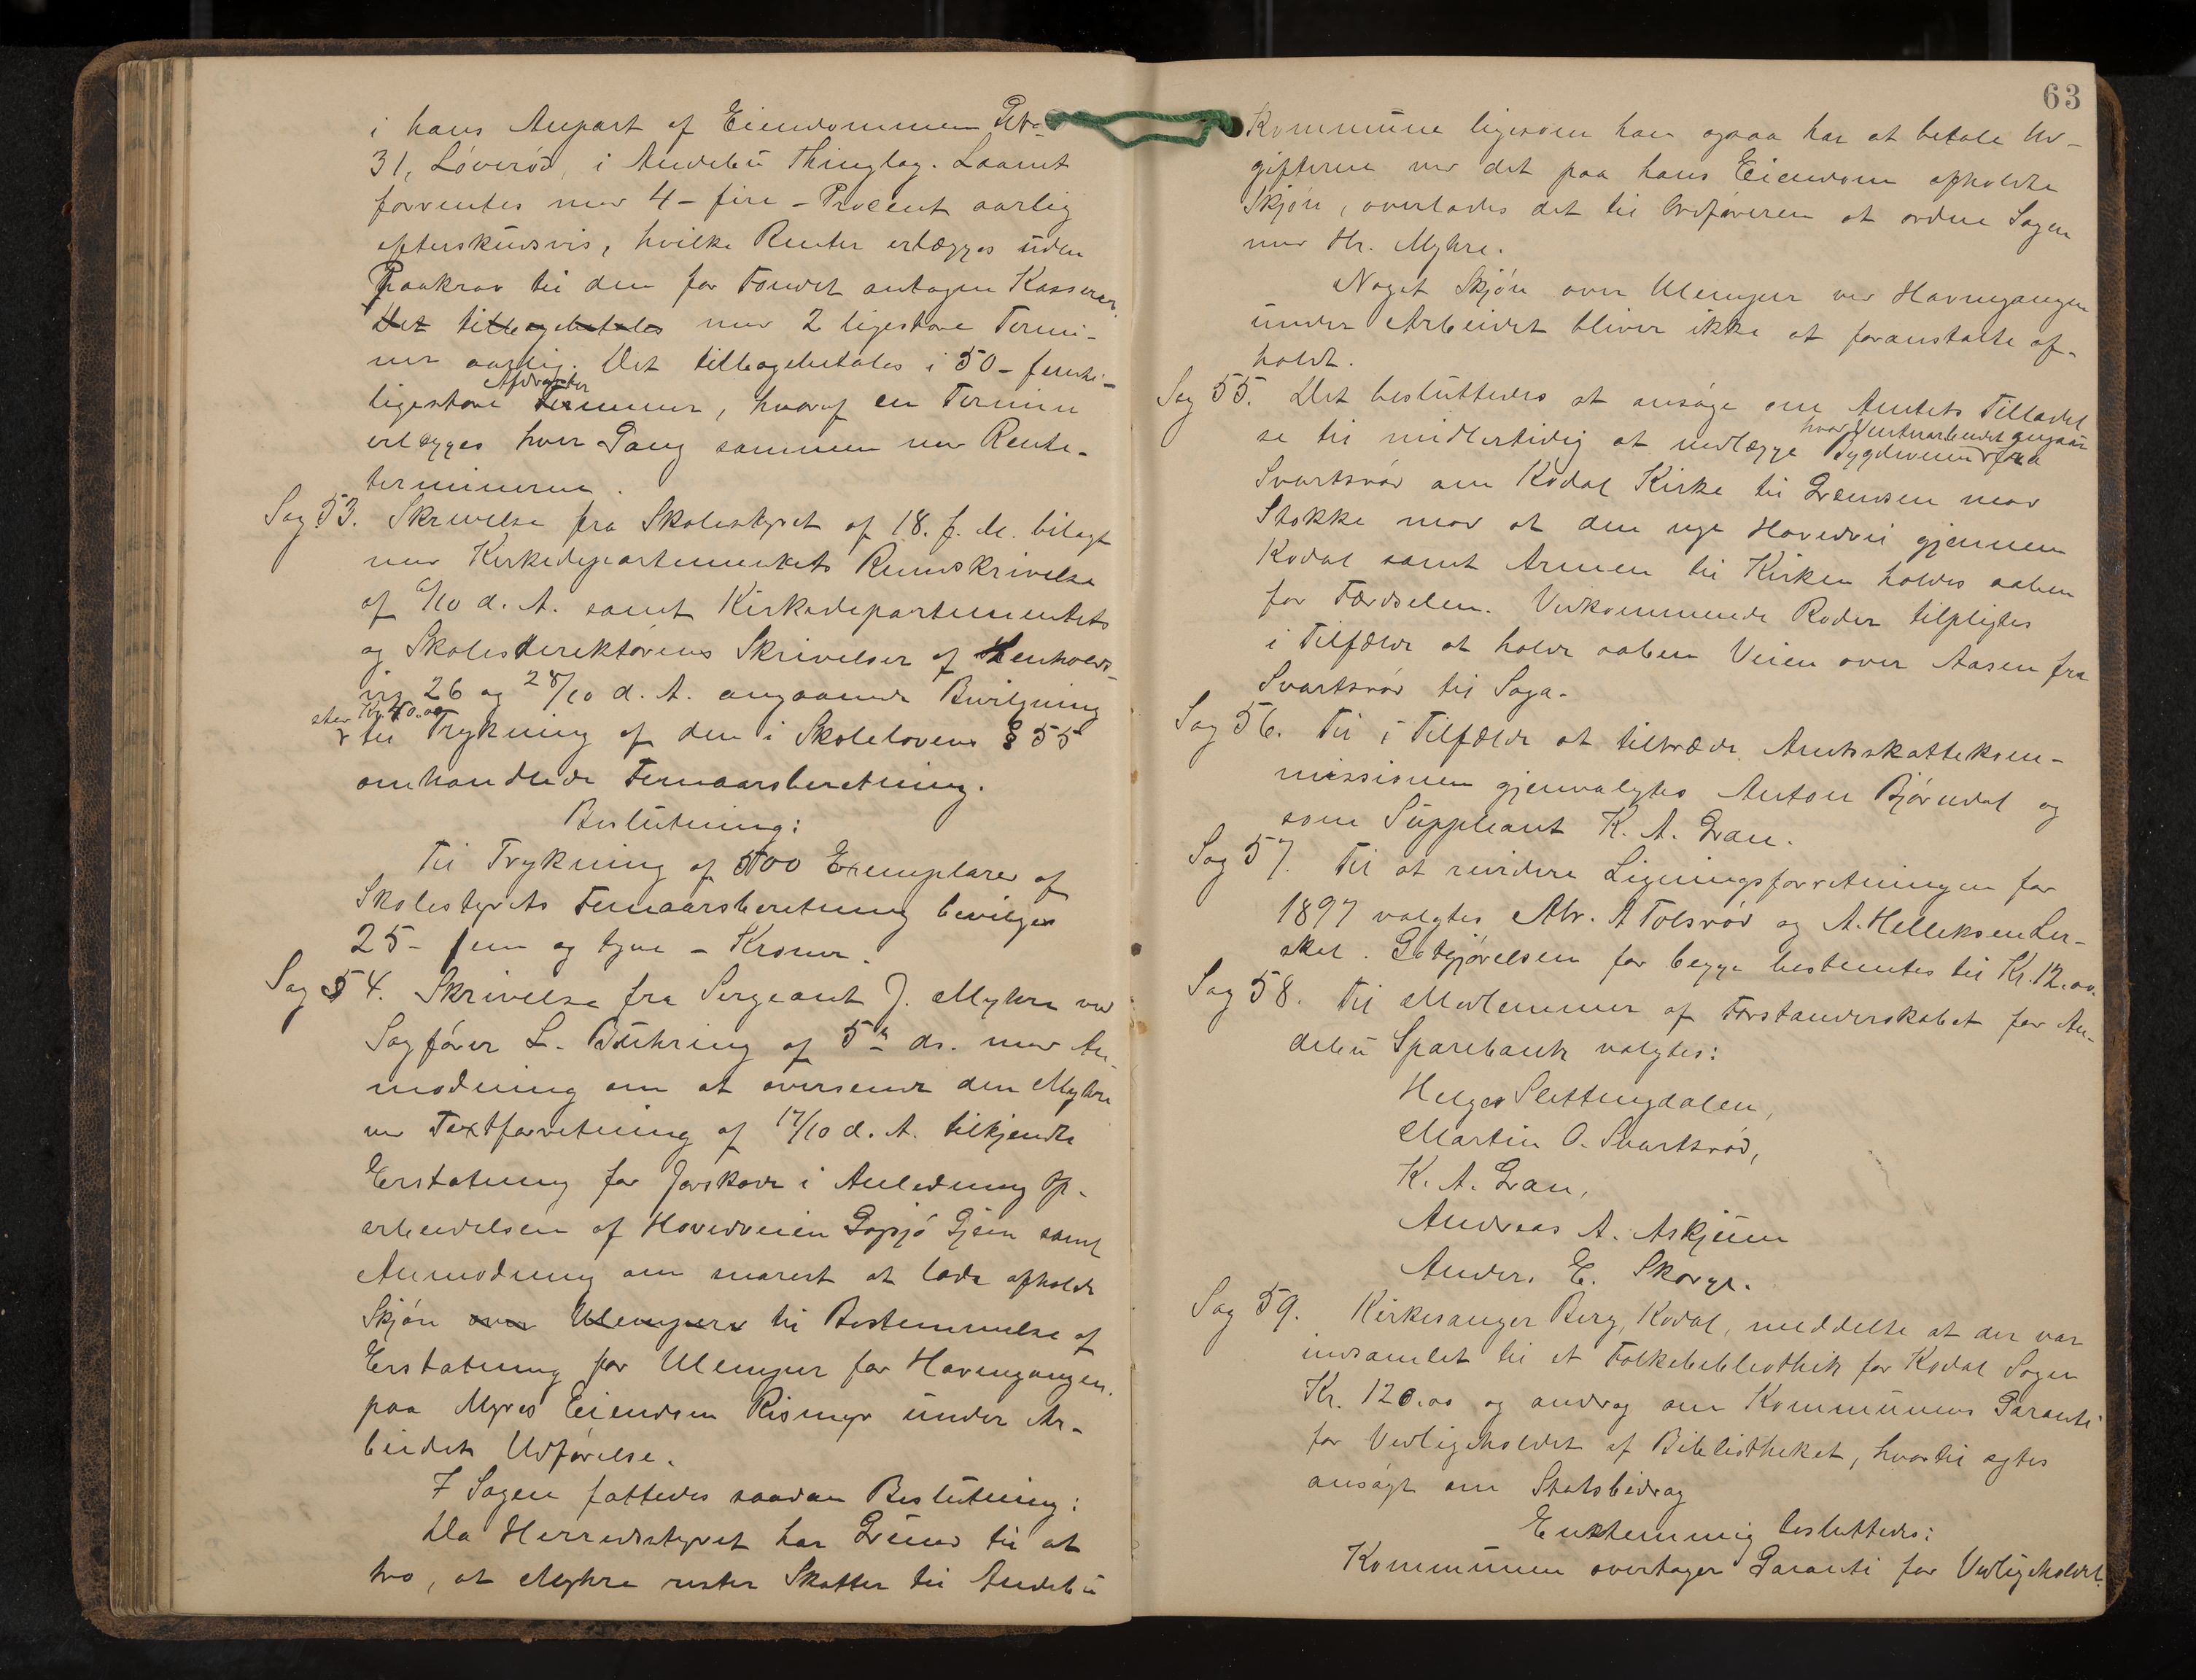 i hans Anpart af Eiendommen
31, Løverød, i Andebu Thinglag. Laanet
forrentes med 4 - fire - Procent aarlig
efterskudsvis, hvilke Renter erlægges uden
Paakrav til den for Fondet antagen Kasserer
Det tilbagebetales med 2 ligestore Termi-
ner aarlig. Det tilbagebetales i 50 - femti -
Afdrag
ligestore Terminer, hvoraf en Termin
erlægges hver Gang sammen med Rente-
terminerne.
Sag 53. Skrivelse fra Skolestyret af 18. f. M. bilagt
med Kirkedepartementets Rundskrivelse
af 6/10 d. A. samt Kirkedepartementets
og Skoledirektørens Skrivelser af henholds-
vis 26 og 28/10 d. A. angaaende Bevilgning
stor Kr. 40.00
til Trykning af den i Skolelovens § 55
omhandlede Femaarsberetning.
Beslutning:
Til Trykning af 500 Exemplarer af
Skolestyrets Femaarsberetning bevilges
25 - fem og tyve - Kroner.
Sag 54. Skrivelse fra Sergeant J. Myhre ved
Sagfører L. Bühring af 5te ds. med An-
modning om at oversende den Myhre
ved Taxtforretning af 17/10 d. A. tilkjendte
Erstatning for Jordskade i Anledning Op-
arbeidelsen af Hovedveien Gopsjø Gjein samt
Anmodning om snarest at lade afholde
Skjøn over Ulemper til Bestemmelse af
Erstatning for Ulemper for Havnegangen
paa Myres Eiendom Rismyr under Ar-
beidets Udførelse.
I Sagen fattedes saadan Beslutning:
Da Herredsstyret har Grund til at
tro, at Myhre rester Skatter til Andebu
63
Kommune ligesom han ogsaa har at betale Ud-
gifterne ved det paa hans Eiendom afholdte
Skjøn, overlades det til Ordføreren at ordne Sagen
med Hr. Myhre.
Noget Skjøn over Ulemper ved Havnegangen
under Arbeidet bliver ikke at foranstalte af-
holdt.
Sag 55. Det besluttedes at ansøge om Amtets Tilladel
hvad Vinterarbeidet angaar
se til midlertidig at nedlægge Bygdeveien fra
Svartsrød om Kodal Kirke til Grændsen mod
Stokke mod at den nye Hovedvei gjennem
Kodal samt Armen til Kirken holdes aaben
for Færdselen. Vedkommende Roder tilpligtes
i Tilfælde at holde aaben Veien over Aasen fra
Svartsrød til Soga.
Sag 56. Til i Tilfælde at tiltræde Amtsskattekom-
missionen gjenvalgtes Anton Bjørndal og
som Suppleant K. A. Gran.
Sag 57. Til at revidere Ligningsforretningen for
1897 valgtes Abr. A Tolsrød og A. Helleksen Ler-
skal. Godtgjørelsen for begge bestemtes til Kr. 12.00.
Sag 58. Til Medlemmer af Forstanderskabet for An-
debu Sparebank valgtes:
Helge Slettingdalen,
Martin O. Svartsrød,
K. A. Gran,
Andreas A. Askjem
Anders E. Skorge.
Sag 59. Kirkesanger Berg, Kodal, meddelte at der var
indsamlet til et Folkebibliothek for Kodal Sogn
Kr. 120.00 og androg om Kommunens Garanti
for Vedligeholdet af Bibliotheket, hvortil agtes
ansøgt om Statsbidrag
Enstemmig besluttedes:
Kommunen overtager Garanti for Vedligeholdet